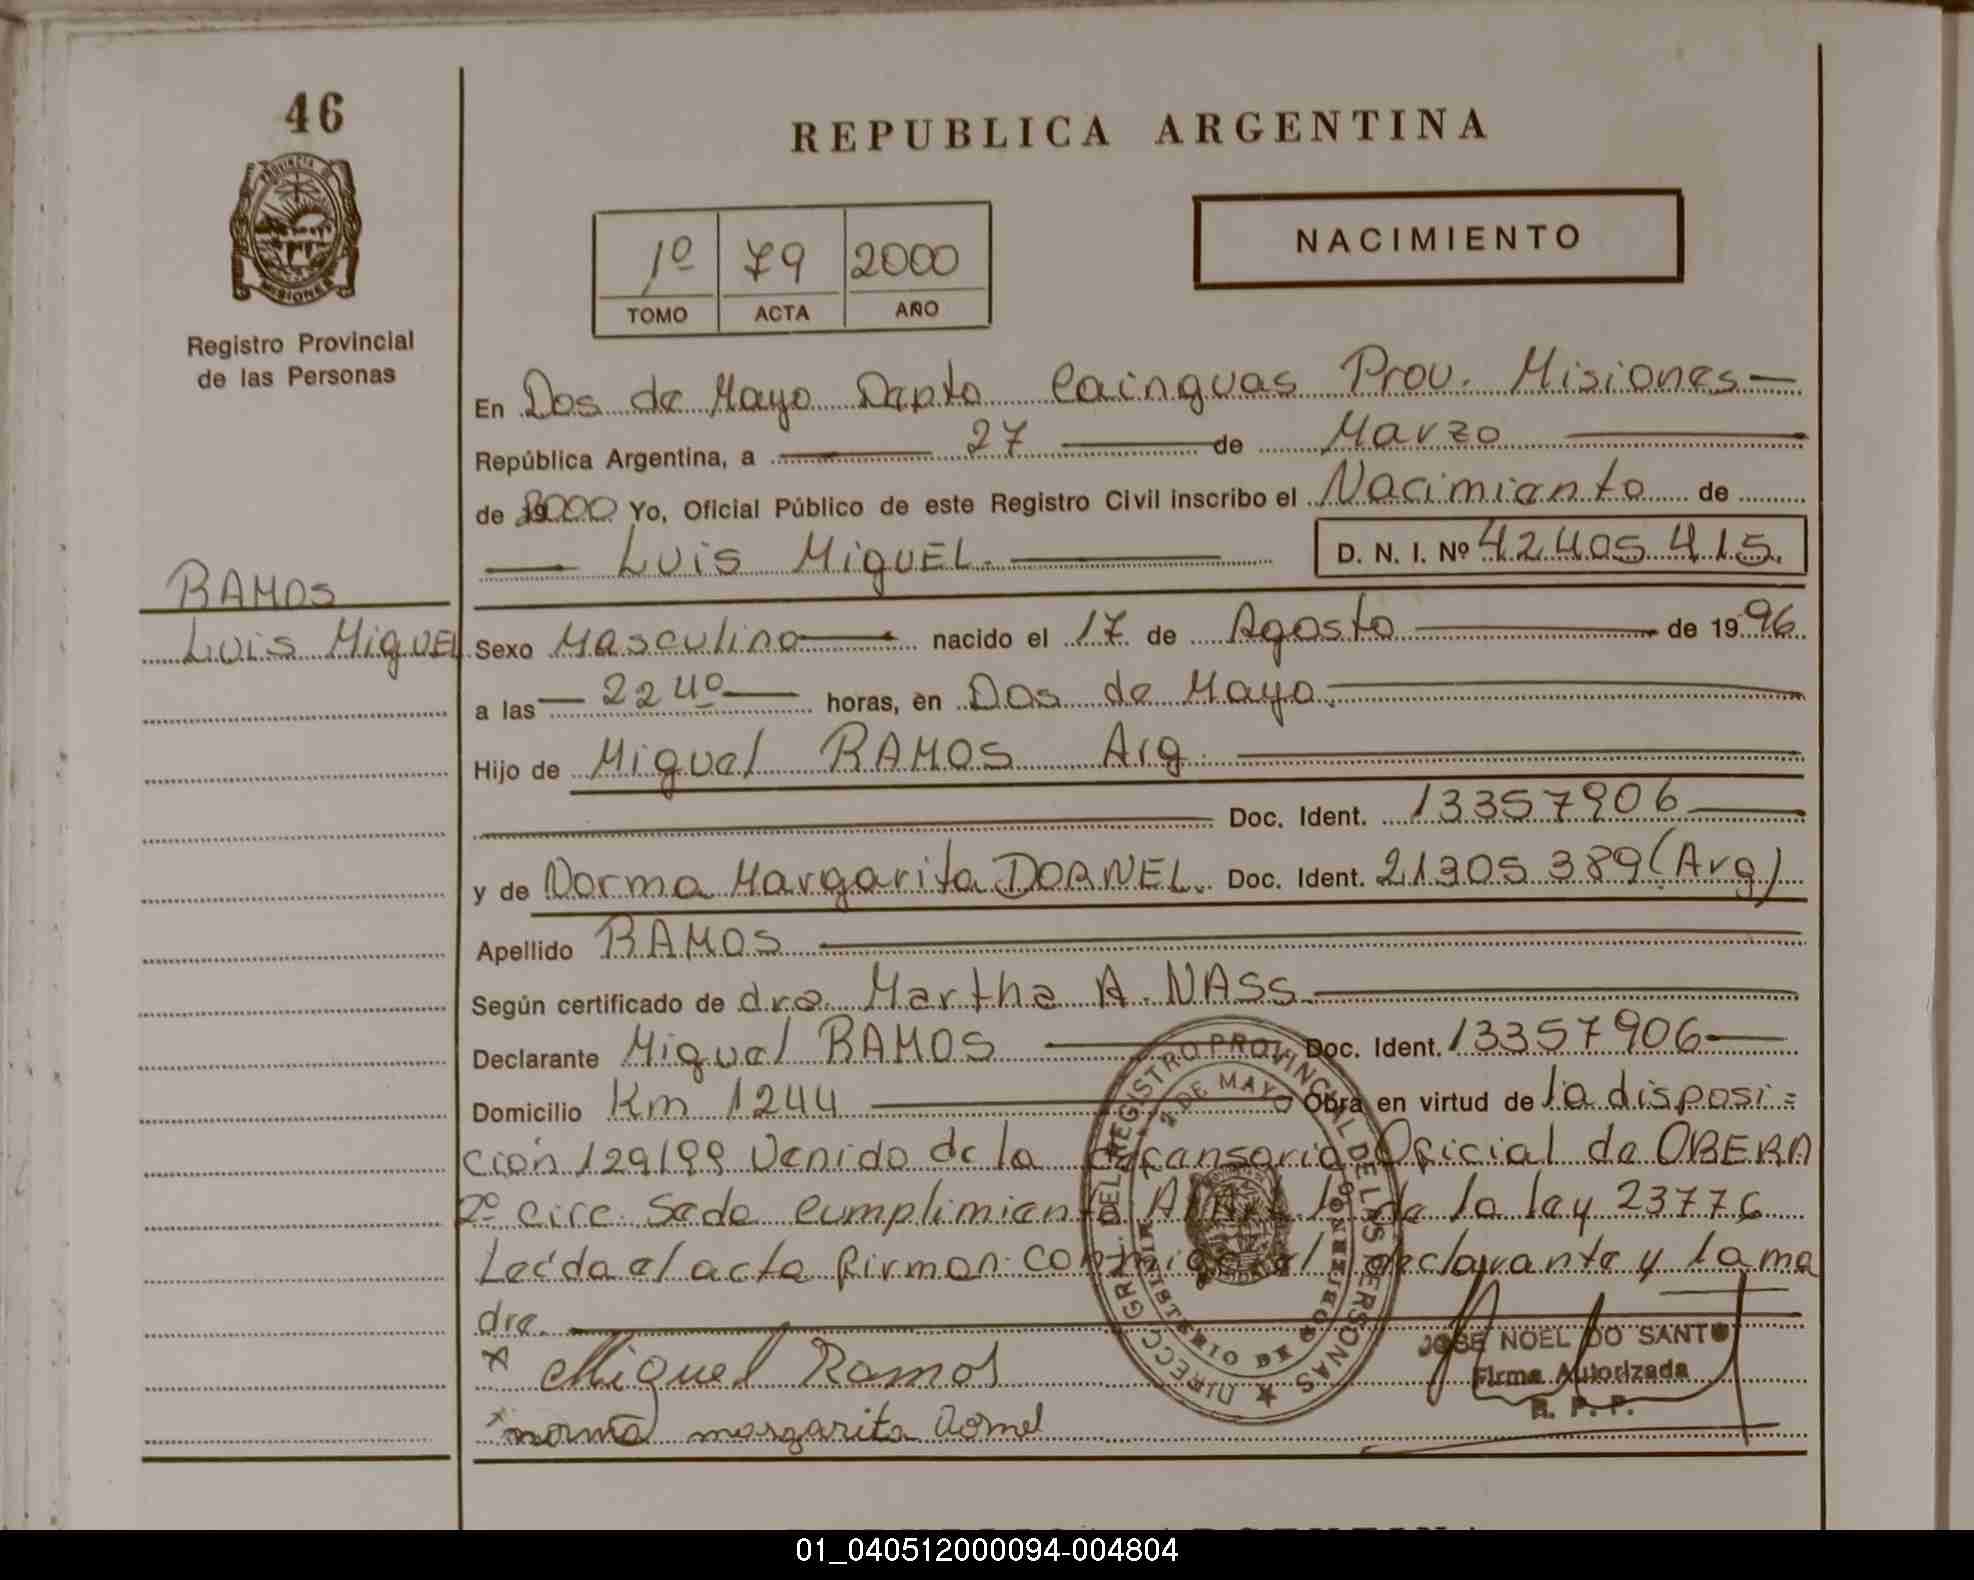 46
PROVINCIA DE
MISIONES
Registro Provincial
de las Personas
RAMOS
Luis MiguEL
REPUBLICA ARGENTINA
1º 79 2000
TOMO ACTA AÑO
NACIMIENTO
En Dos de Mayo Dapto Cainguas Prov. Misiones
República Argentina, a 27 de Marzo
de 2000 Yo, Oficial Público de este Registro Civil inscribo el Nacimianto de
Luis MiguEL. D. N. I. Nº 42405415.
Sexo Masculino nacido el 17 de Agosto de 1996.
a las 22 40 horas, en Dos de Mayo.
Hijo de Miguel RAMOS Arg.
Doc. Ident. 13357906
y de Norma Margarita DORNEL. Doc. Ident. 21305 389 (Arg)
Apellido RAMOS
Según certificado de dra. Martha A. NASS
Declarante Miguel RAMOS Doc. Ident. 13357906
Domicilio Km 1244 Obra en virtud de la disposi=
ción 129/99 Venido de la defensoria Oficial de OBERA
2º circ. Sede cumplimiento de la ley 23776
Leída el acta firman conmigo el declarante y la ma
dre.
x Miguel Ramos
x norma margarita Dornel
DIRECC. GRAL. DEL REGISTRO PROVINCIAL DE LAS PERSONAS
2 DE MAYO
MINISTERIO DE GOBIERNO
JOSE NOEL DO SANTOS
Firma Autorizada
R. P. P.
01_040512000094-004804